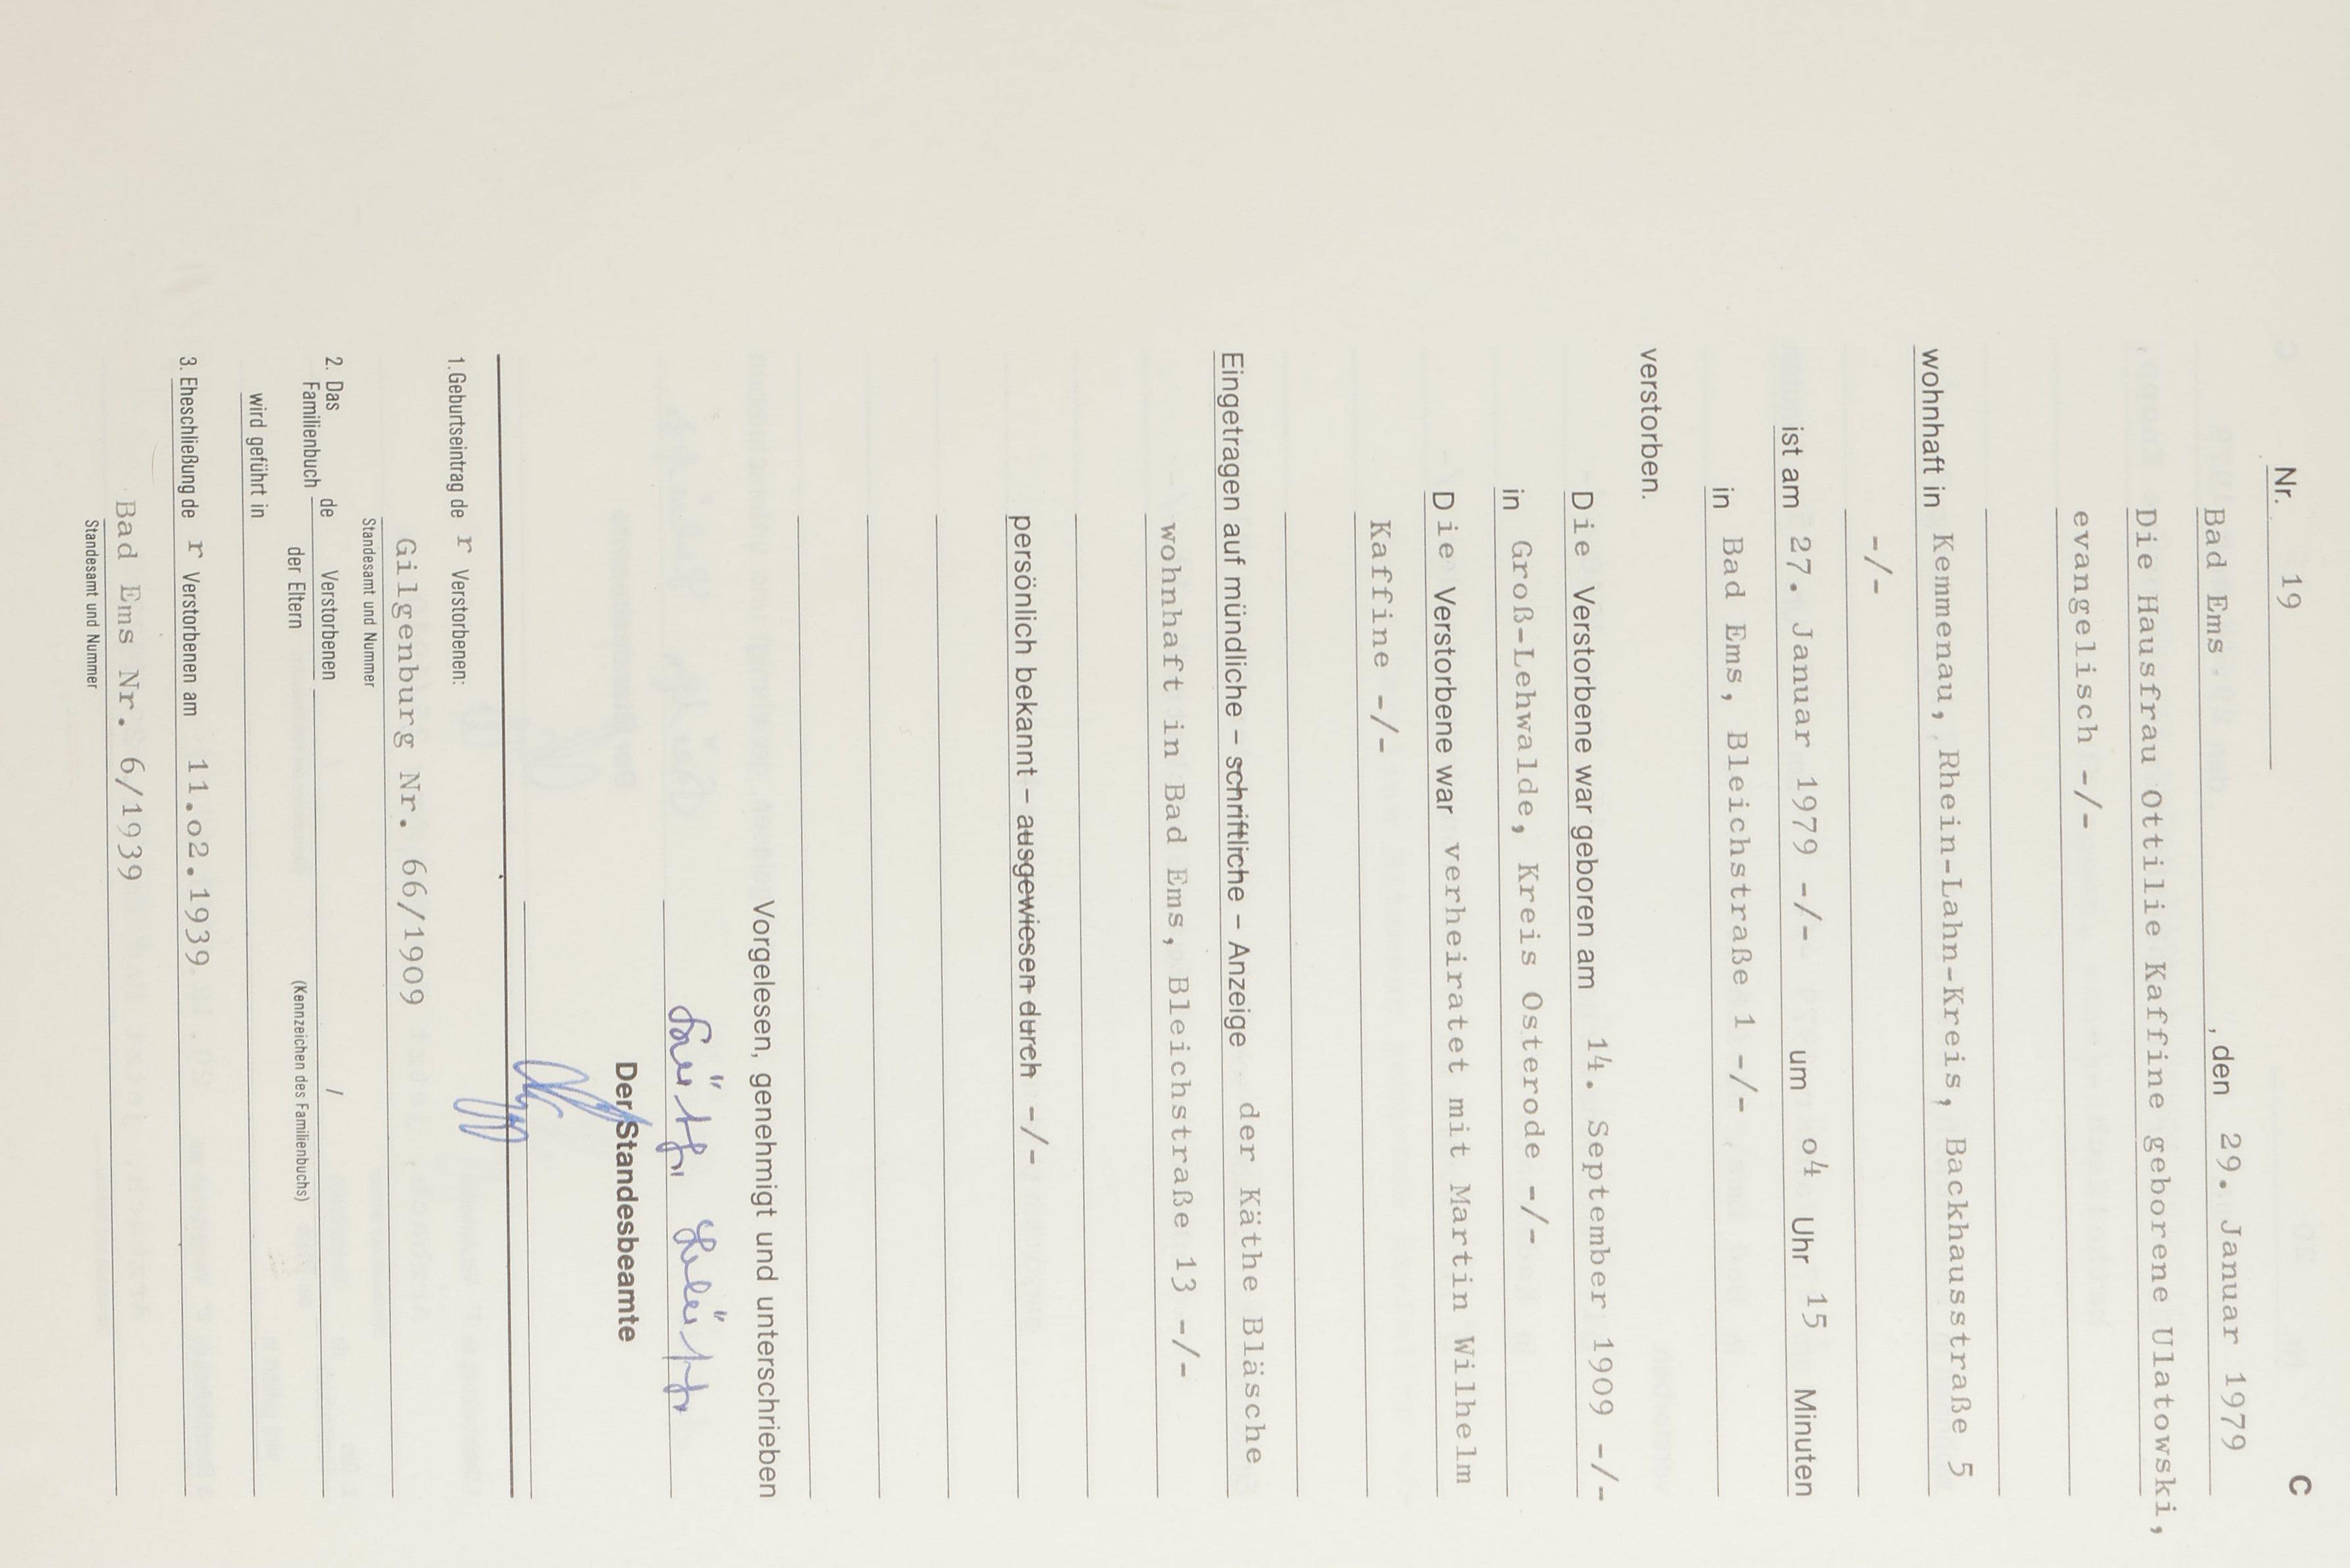 C
Nr. 19
Bad Ems, den 29. Januar 1979
Die Hausfrau Ottilie Kaffine geborene Ulatowski,
evangelisch -/-
wohnhaft in Kemmenau, Rhein-Lahn-Kreis, Backhausstraße 5
-/-
ist am 27. Januar 1979 -/- um o4 Uhr 15 Minuten
in Bad Ems, Bleichstraße 1 -/-
verstorben.
Die Verstorbene war geboren am 14. September 1909 -/-
in Groß-Lehwalde, Kreis Osterode -/-
Die Verstorbene war verheiratet mit Martin Wilhelm
Kaffine -/-
Eingetragen auf mündliche – schriftliche – Anzeige der Käthe Bläsche
wohnhaft in Bad Ems, Bleichstraße 13 -/-
persönlich bekannt – ausgewiesen durch -/-
Vorgelesen, genehmigt und unterschrieben
Der Standesbeamte
1. Geburtseintrag de r Verstorbenen:
Gilgenburg Nr. 66/1909
Standesamt und Nummer
2. Das Familienbuch de Verstorbenen /
der Eltern (Kennzeichen des Familienbuchs)
wird geführt in
3. Eheschließung de r Verstorbenen am 11.o2.1939
Bad Ems Nr. 6/1939
Standesamt und Nummer